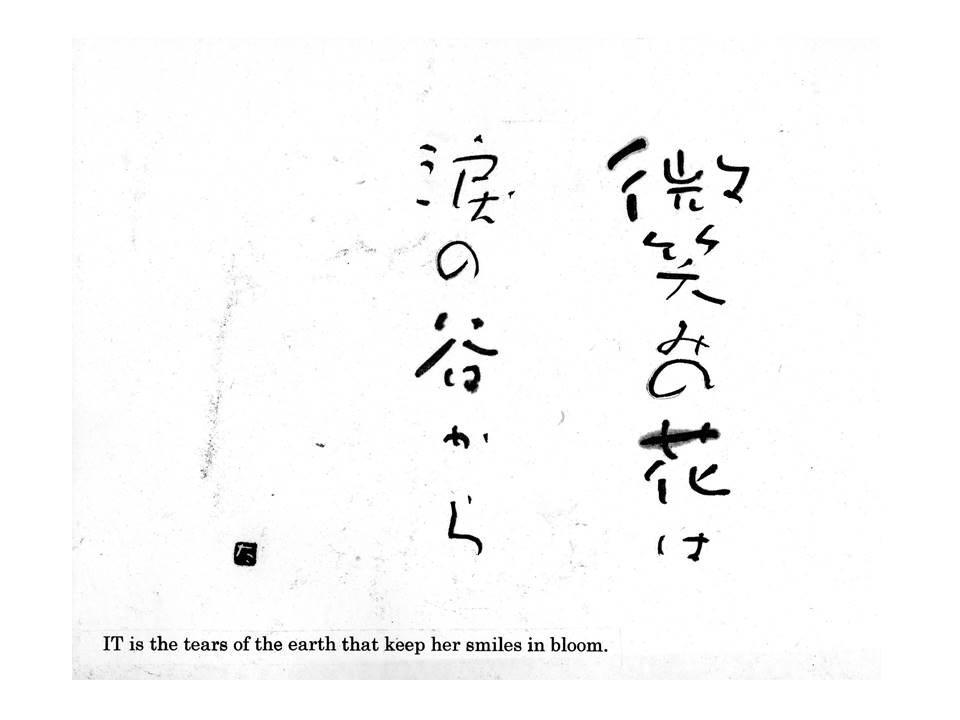 微笑みの花は
涙の谷から
IT is the tears of the earth that keep her smiles in bloom.